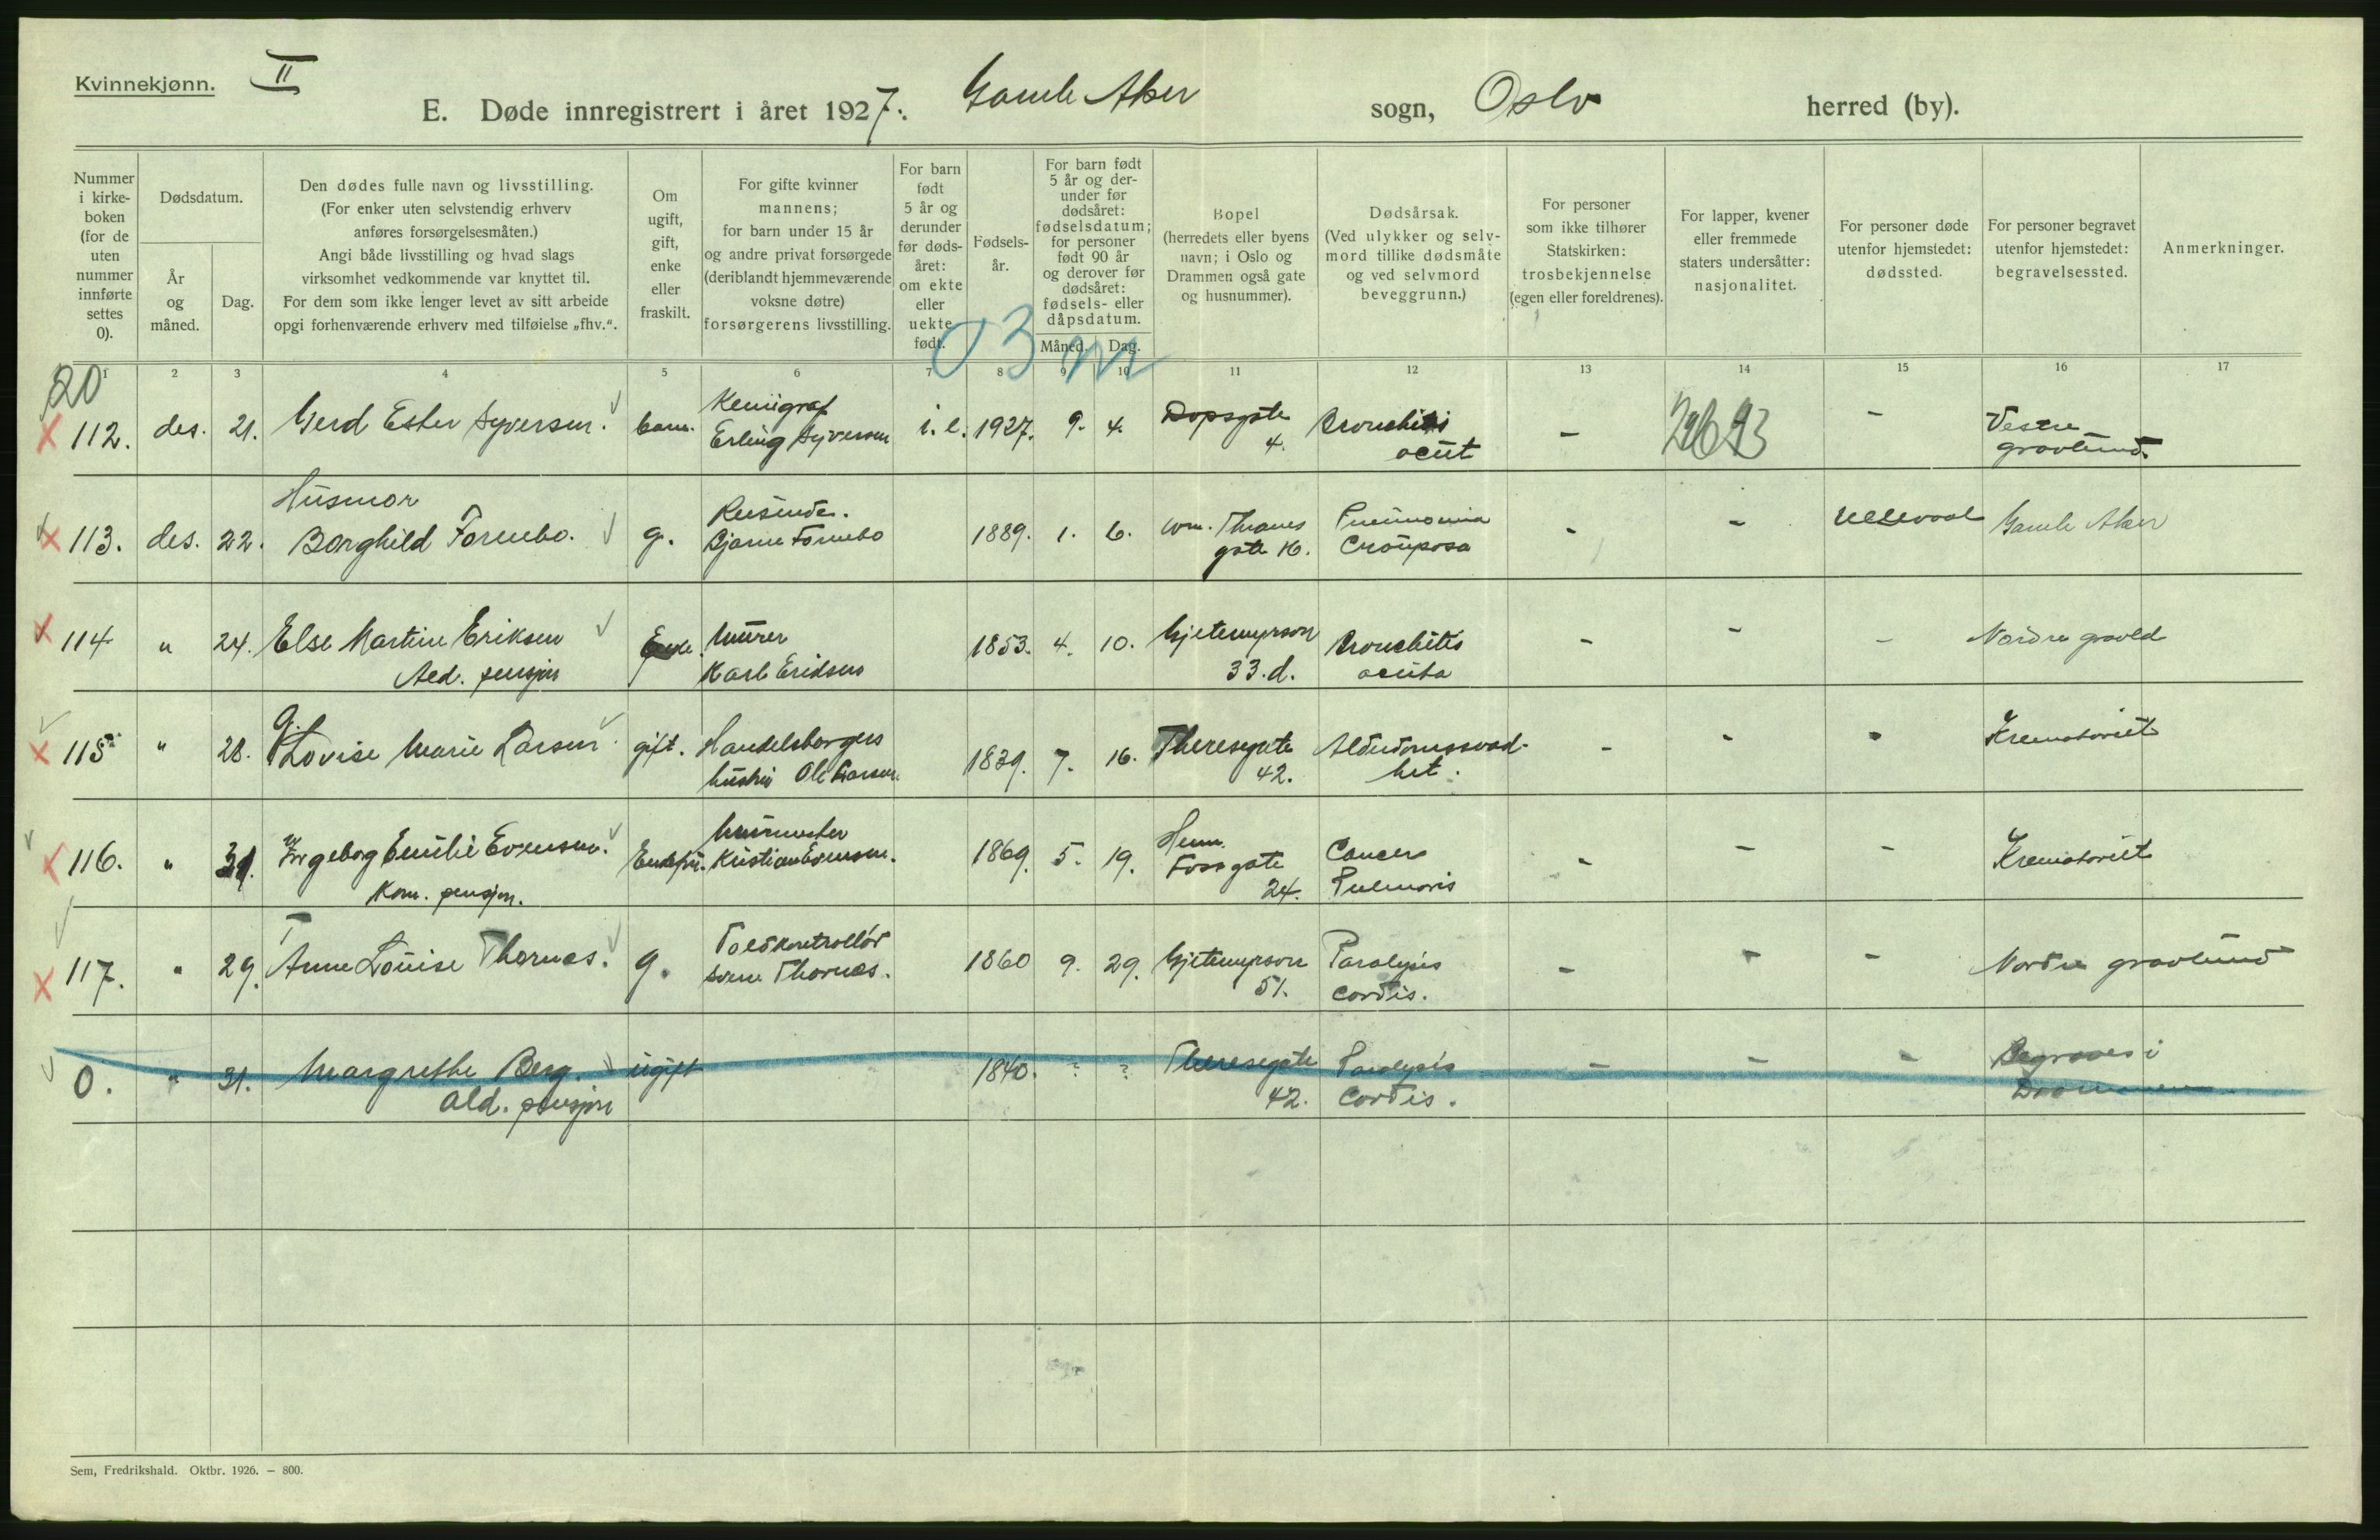 Kvinnekjønn. II
E. Døde innregistrert i året 1927. Gamle Aker sogn, Oslo herred (by).
Nummer i kirkeboken (for de uten nummer innførte settes 0).
Dødsdatum.
År og måned.
Dag.
Den dødes fulle navn og livsstilling.
(For enker uten selvstendig erhverv
anføres forsørgelsesmåten.)
Angi både livsstilling og hvad slags
virksomhet vedkommende var knyttet til.
For dem som ikke lenger levet av sitt arbeide
opgi forhenværende erhverv med tilføielse „fhv.“.
Om
ugift,
gift,
enke
eller
fraskilt.
For gifte kvinner
mannens;
for barn under 15 år
og andre privat forsørgede
(deriblandt hjemmeværende
voksne døtre)
forsørgerens livsstilling.
For barn
født
5 år og
derunder
før døds-
året:
om ekte
eller
uekte
født.
Fødsels-
år.
For barn født
5 år og der-
under før
dødsåret:
fødselsdatum;
for personer
født 90 år
og derover før
dødsåret:
fødsels- eller
dåpsdatum.
Måned. Dag.
Bopel
(herredets eller byens
navn; i Oslo og
Drammen også gate
og husnummer).
Dødsårsak.
(Ved ulykker og selv-
mord tillike dødsmåte
og ved selvmord
beveggrunn.)
For personer
som ikke tilhører
Statskirken:
trosbekjennelse
(egen eller foreldrenes).
For lapper, kvener
eller fremmede
staters undersåtter:
nasjonalitet.
For personer døde
utenfor hjemstedet:
dødssted.
For personer begravet
utenfor hjemstedet:
begravelsessted.
Anmerkninger.
1 2 3 4 5 6 7 8 9 10 11 12 13 14 15 16 17
20
112. des. 21. Gerd Ester Syversen. barn. Kemigraf i. e. 1927. 9. 4. Dopsgate Bronchitis - - Vestre
Erling Syversen 4. acut gravlund.
Husmor
113. des. 22. Borghild Fornebo. g. Reisende. 1889. 1. 6. Wm. Thranes Pneumonia - - Ullevaal Gamle Aker
Bjarne Fornebo gate 16. Crouposa
114 " 24. Else Martine Eriksen Enke. Murer 1853. 4. 10. Gjetemyrsvn Bronchitis - - - Nordre gravld
pensjon Karl Eriksen 33.d. acuta
115 " 28. Lovise Marie Larsen gift. Handelsborgers 1839. 7. 16. Theresegate Alderdomssvak- - - - Krematoriet
hustru Ole Larsen. 42. het.
116. " 31. Ingeborg Emilie Evensen. Enkefru. Murmester 1869. 5. 19. Herm. Cancer - - - Krematoriet
Kom. pensjon. Kristian Evensen. Fossgate Pulmonis
24.
117. " 29. Anne Louise Thornæs. g. Toldkontrollør 1860 9. 29. Gjetemyrsvn Paralysis - - - Nordre gravlund
Thornæs. 51. Cordis.
0. " 31. Margrethe Berg. ugift 1840. ? ? Theresegate Paralysis - - - Begraves i
Ald. pensjon 42. Cordis. Drammen
Sem, Fredrikshald. Oktbr. 1926. — 800.